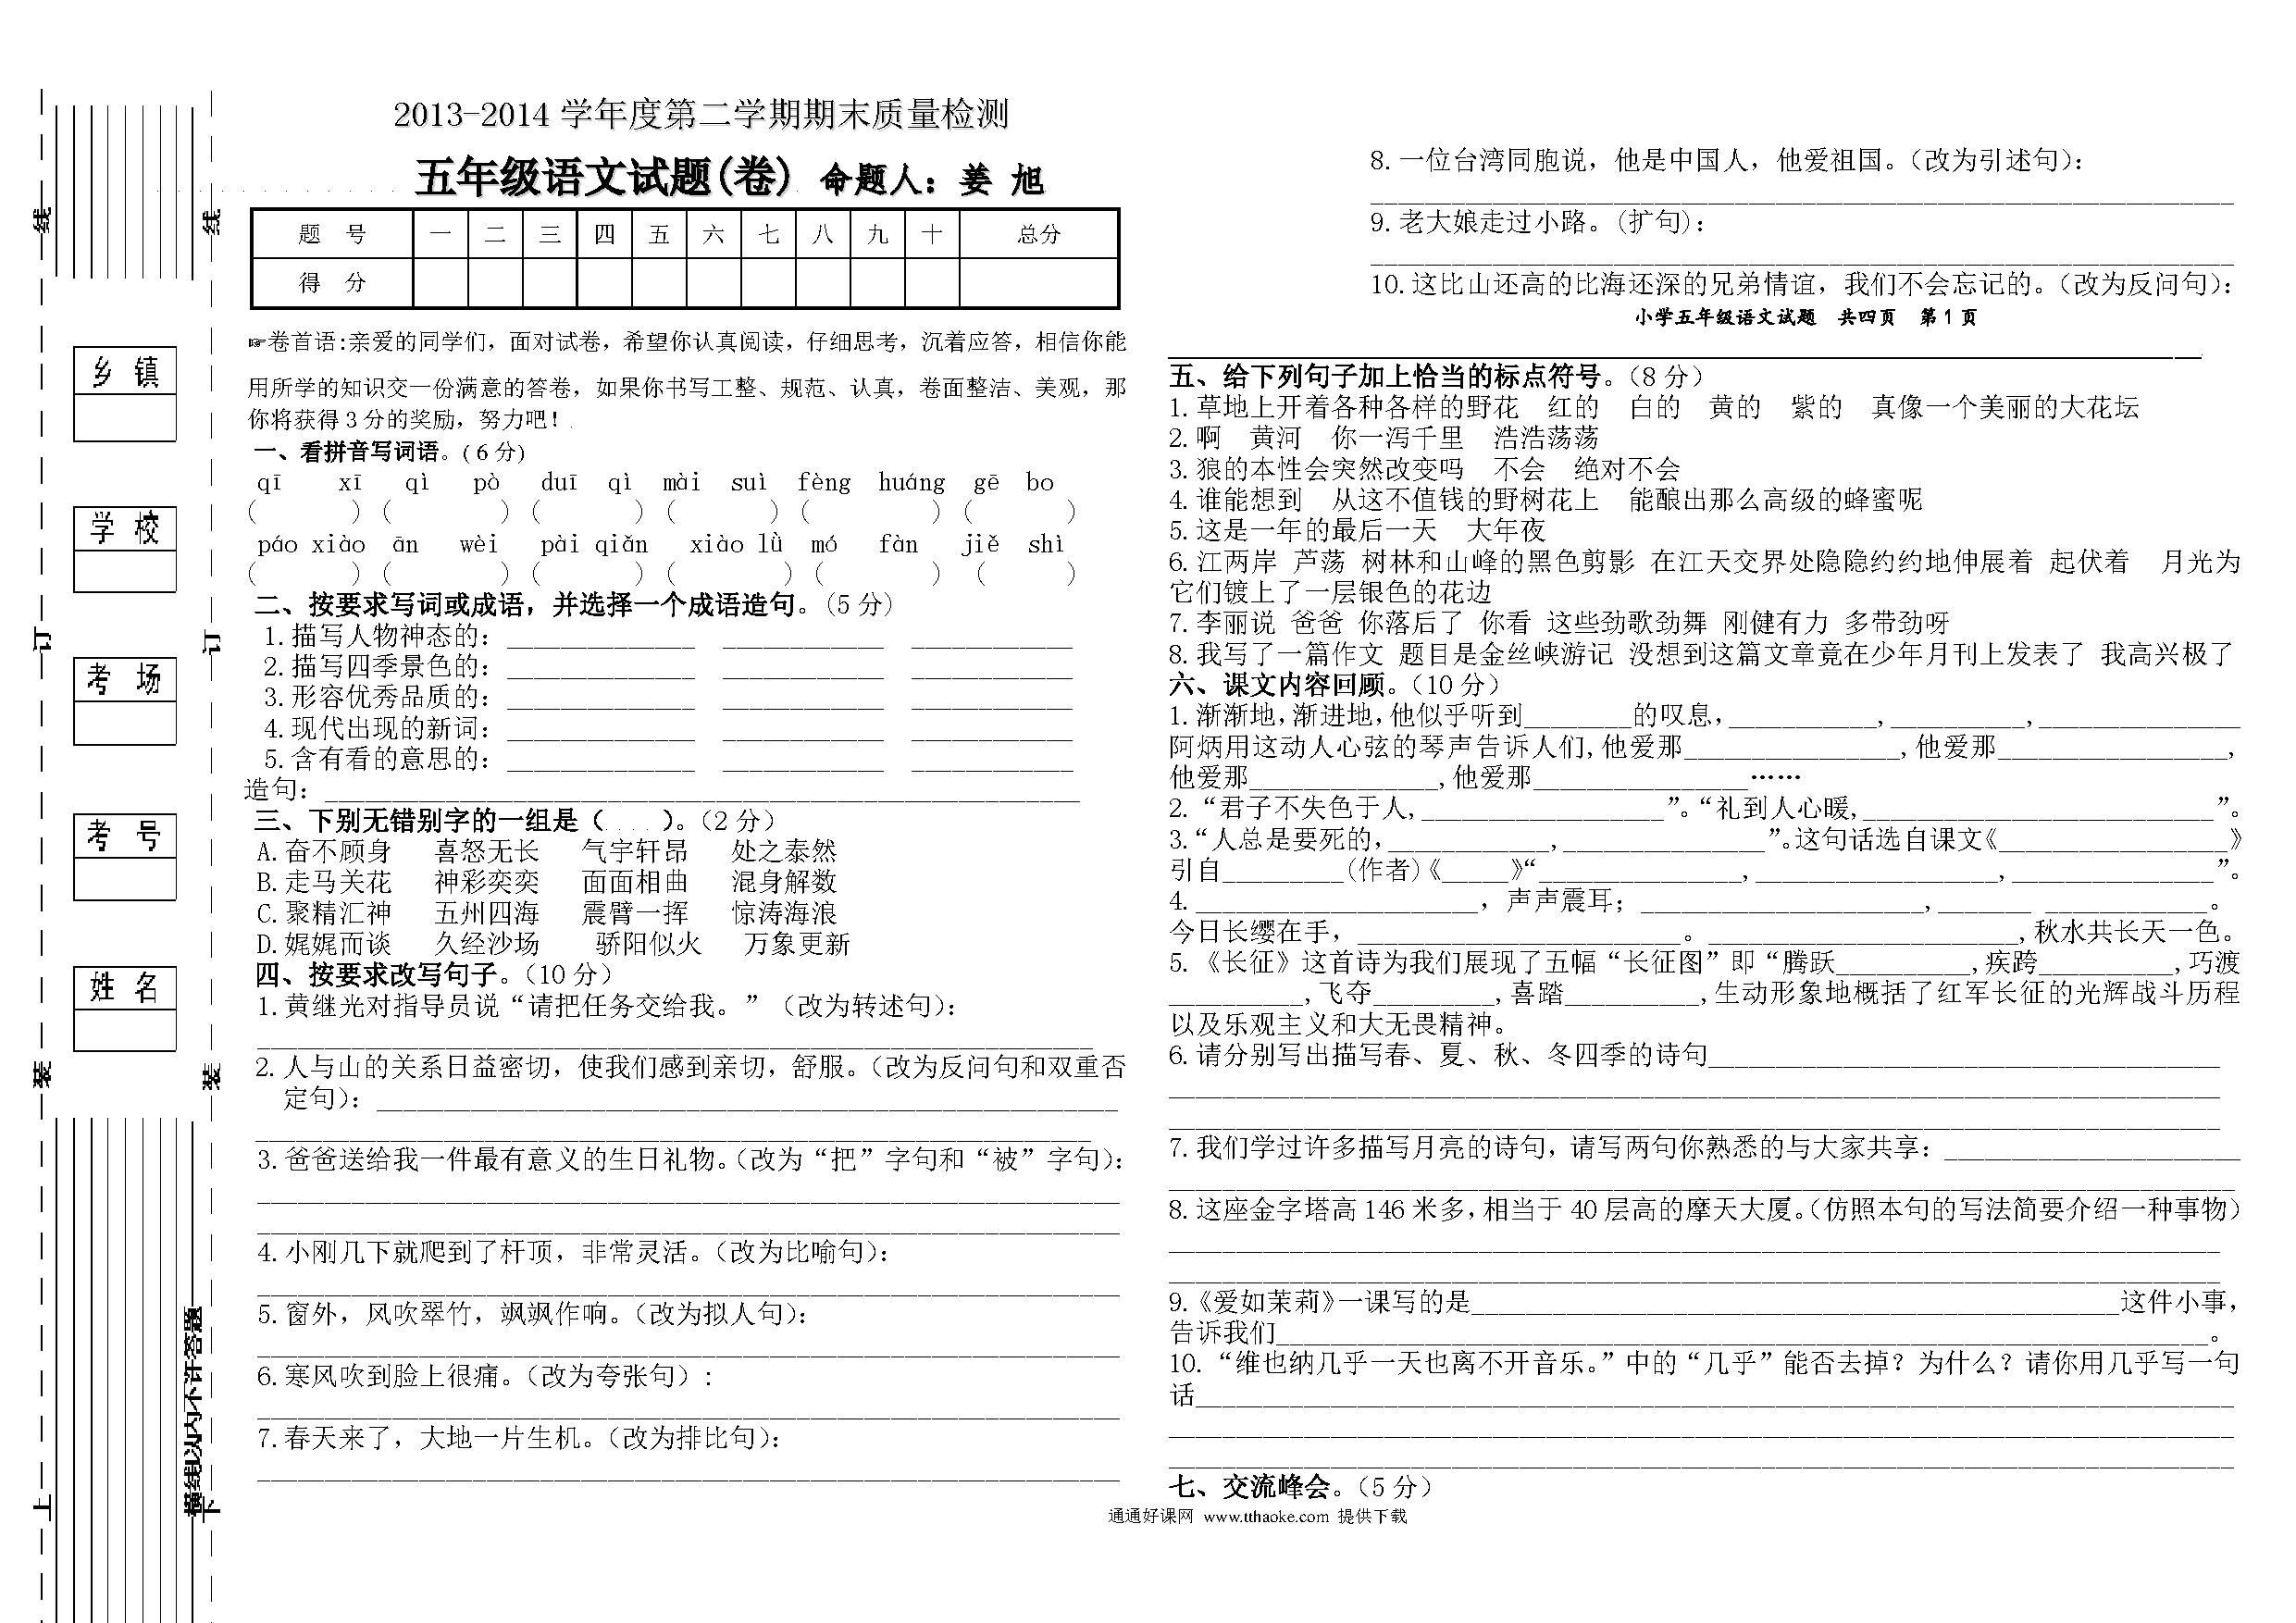 2013-2014 学年度第二学期期末质量检测
五年级语文试题(卷) 命题人：姜 旭
题 号 一 二 三 四 五 六 七 八 九 十 总分
得 分
☞卷首语:亲爱的同学们，面对试卷，希望你认真阅读，仔细思考，沉着应答，相信你能
用所学的知识交一份满意的答卷，如果你书写工整、规范、认真，卷面整洁、美观，那
你将获得 3 分的奖励，努力吧！
一、看拼音写词语。( 6 分)
qī xī qì pò duī qì mài suì fèng huáng gē bo
( ) ( ) ( ) ( ) ( ) ( )
páo xiào ān wèi pài qiǎn xiào lǜ mó fàn jiě shì
( ) ( ) ( ) ( ) ( ) ( )
二、按要求写词或成语，并选择一个成语造句。(5 分)
1.描写人物神态的：______________ ____________ ____________
2.描写四季景色的：______________ ____________ ____________
3.形容优秀品质的：______________ ____________ ____________
4.现代出现的新词：______________ ____________ ____________
5.含有看的意思的：______________ ____________ ____________
造句：________________________________________________________
三、下别无错别字的一组是（ ）。（2 分）
A.奋不顾身 喜怒无长 气宇轩昂 处之泰然
B.走马关花 神彩奕奕 面面相曲 混身解数
C.聚精汇神 五州四海 震臂一挥 惊涛海浪
D.娓娓而谈 久经沙场 骄阳似火 万象更新
四、按要求改写句子。（10 分）
1.黄继光对指导员说“请把任务交给我。”（改为转述句）：
______________________________________________________________
2.人与山的关系日益密切，使我们感到亲切，舒服。（改为反问句和双重否
定句）：_______________________________________________________
______________________________________________________________
3.爸爸送给我一件最有意义的生日礼物。（改为“把”字句和“被”字句）：
________________________________________________________________
________________________________________________________________
4.小刚几下就爬到了杆顶，非常灵活。（改为比喻句）：
________________________________________________________________
5.窗外，风吹翠竹，飒飒作响。（改为拟人句）：
________________________________________________________________
6.寒风吹到脸上很痛。（改为夸张句）:
________________________________________________________________
7.春天来了，大地一片生机。（改为排比句）：
________________________________________________________________
8.一位台湾同胞说，他是中国人，他爱祖国。（改为引述句）：
________________________________________________________________
9.老大娘走过小路。(扩句)：
________________________________________________________________
10.这比山还高的比海还深的兄弟情谊，我们不会忘记的。（改为反问句）：
小学五年级语文试题 共四页 第 1 页
________________________________________________________________
五、给下列句子加上恰当的标点符号。（8 分）
1.草地上开着各种各样的野花 红的 白的 黄的 紫的 真像一个美丽的大花坛
2.啊 黄河 你一泻千里 浩浩荡荡
3.狼的本性会突然改变吗 不会 绝对不会
4.谁能想到 从这不值钱的野树花上 能酿出那么高级的蜂蜜呢
5.这是一年的最后一天 大年夜
6.江两岸 芦荡 树林和山峰的黑色剪影 在江天交界处隐隐约约地伸展着 起伏着 月光为
它们镀上了一层银色的花边
7.李丽说 爸爸 你落后了 你看 这些劲歌劲舞 刚健有力 多带劲呀
8.我写了一篇作文 题目是金丝峡游记 没想到这篇文章竟在少年月刊上发表了 我高兴极了
六、课文内容回顾。（10 分）
1.渐渐地,渐进地,他似乎听到________的叹息,___________,__________,_______________
阿炳用这动人心弦的琴声告诉人们,他爱那________________,他爱那_________________,
他爱那______________,他爱那________________……
2.“君子不失色于人,__________________”。“礼到人心暖,__________________________”。
3.“人总是要死的,____________,_______________”。这句话选自课文《_________________》
引自_________(作者)《_____》“_______________,__________________,_______________”。
4._____________________，声声震耳；_____________________,_______ ____________。
今日长缨在手，________________________。_______________________,秋水共长天一色。
5.《长征》这首诗为我们展现了五幅“长征图”即“腾跃__________,疾跨__________,巧渡
__________,飞夺_________,喜踏__________,生动形象地概括了红军长征的光辉战斗历程
以及乐观主义和大无畏精神。
6.请分别写出描写春、夏、秋、冬四季的诗句______________________________________
______________________________________________________________________________
______________________________________________________________________________
7.我们学过许多描写月亮的诗句，请写两句你熟悉的与大家共享：______________________
_______________________________________________________________________________
8.这座金字塔高 146 米多,相当于 40 层高的摩天大厦。（仿照本句的写法简要介绍一种事物）
______________________________________________________________________________
______________________________________________________________________________
9.《爱如茉莉》一课写的是________________________________________________这件小事，
告诉我们_____________________________________________________________________。
10.“维也纳几乎一天也离不开音乐。”中的“几乎”能否去掉？为什么？请你用几乎写一句
话_____________________________________________________________________________
_______________________________________________________________________________
_______________________________________________________________________________
七、交流峰会。（5 分）
通通好课网 www.tthaoke.com 提供下载
乡 镇
学 校
考 场
考 号
姓 名
线
订
装
上
线
订
装
下
横线以内不许答题